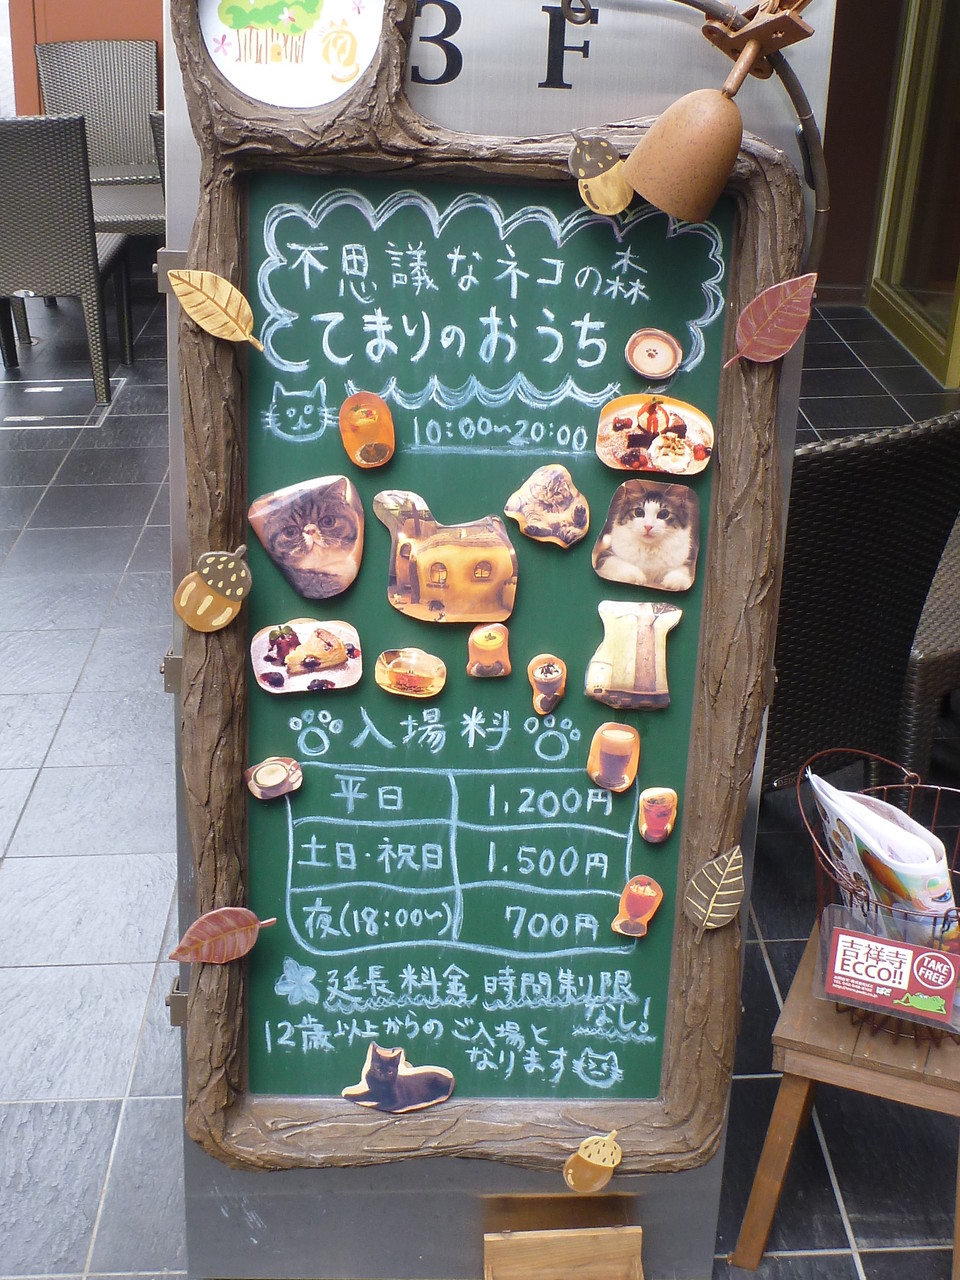 3F
不思議なネコの森
てまりのおうち
10:00~20:00
入場料
平日 1.200円
土日・祝日 1.500円
夜(18:00~) 700円
延長料金 時間制限
なし!
12歳以上からのご入場と
なります
吉祥寺
ECCO!!
TAKE
FREE